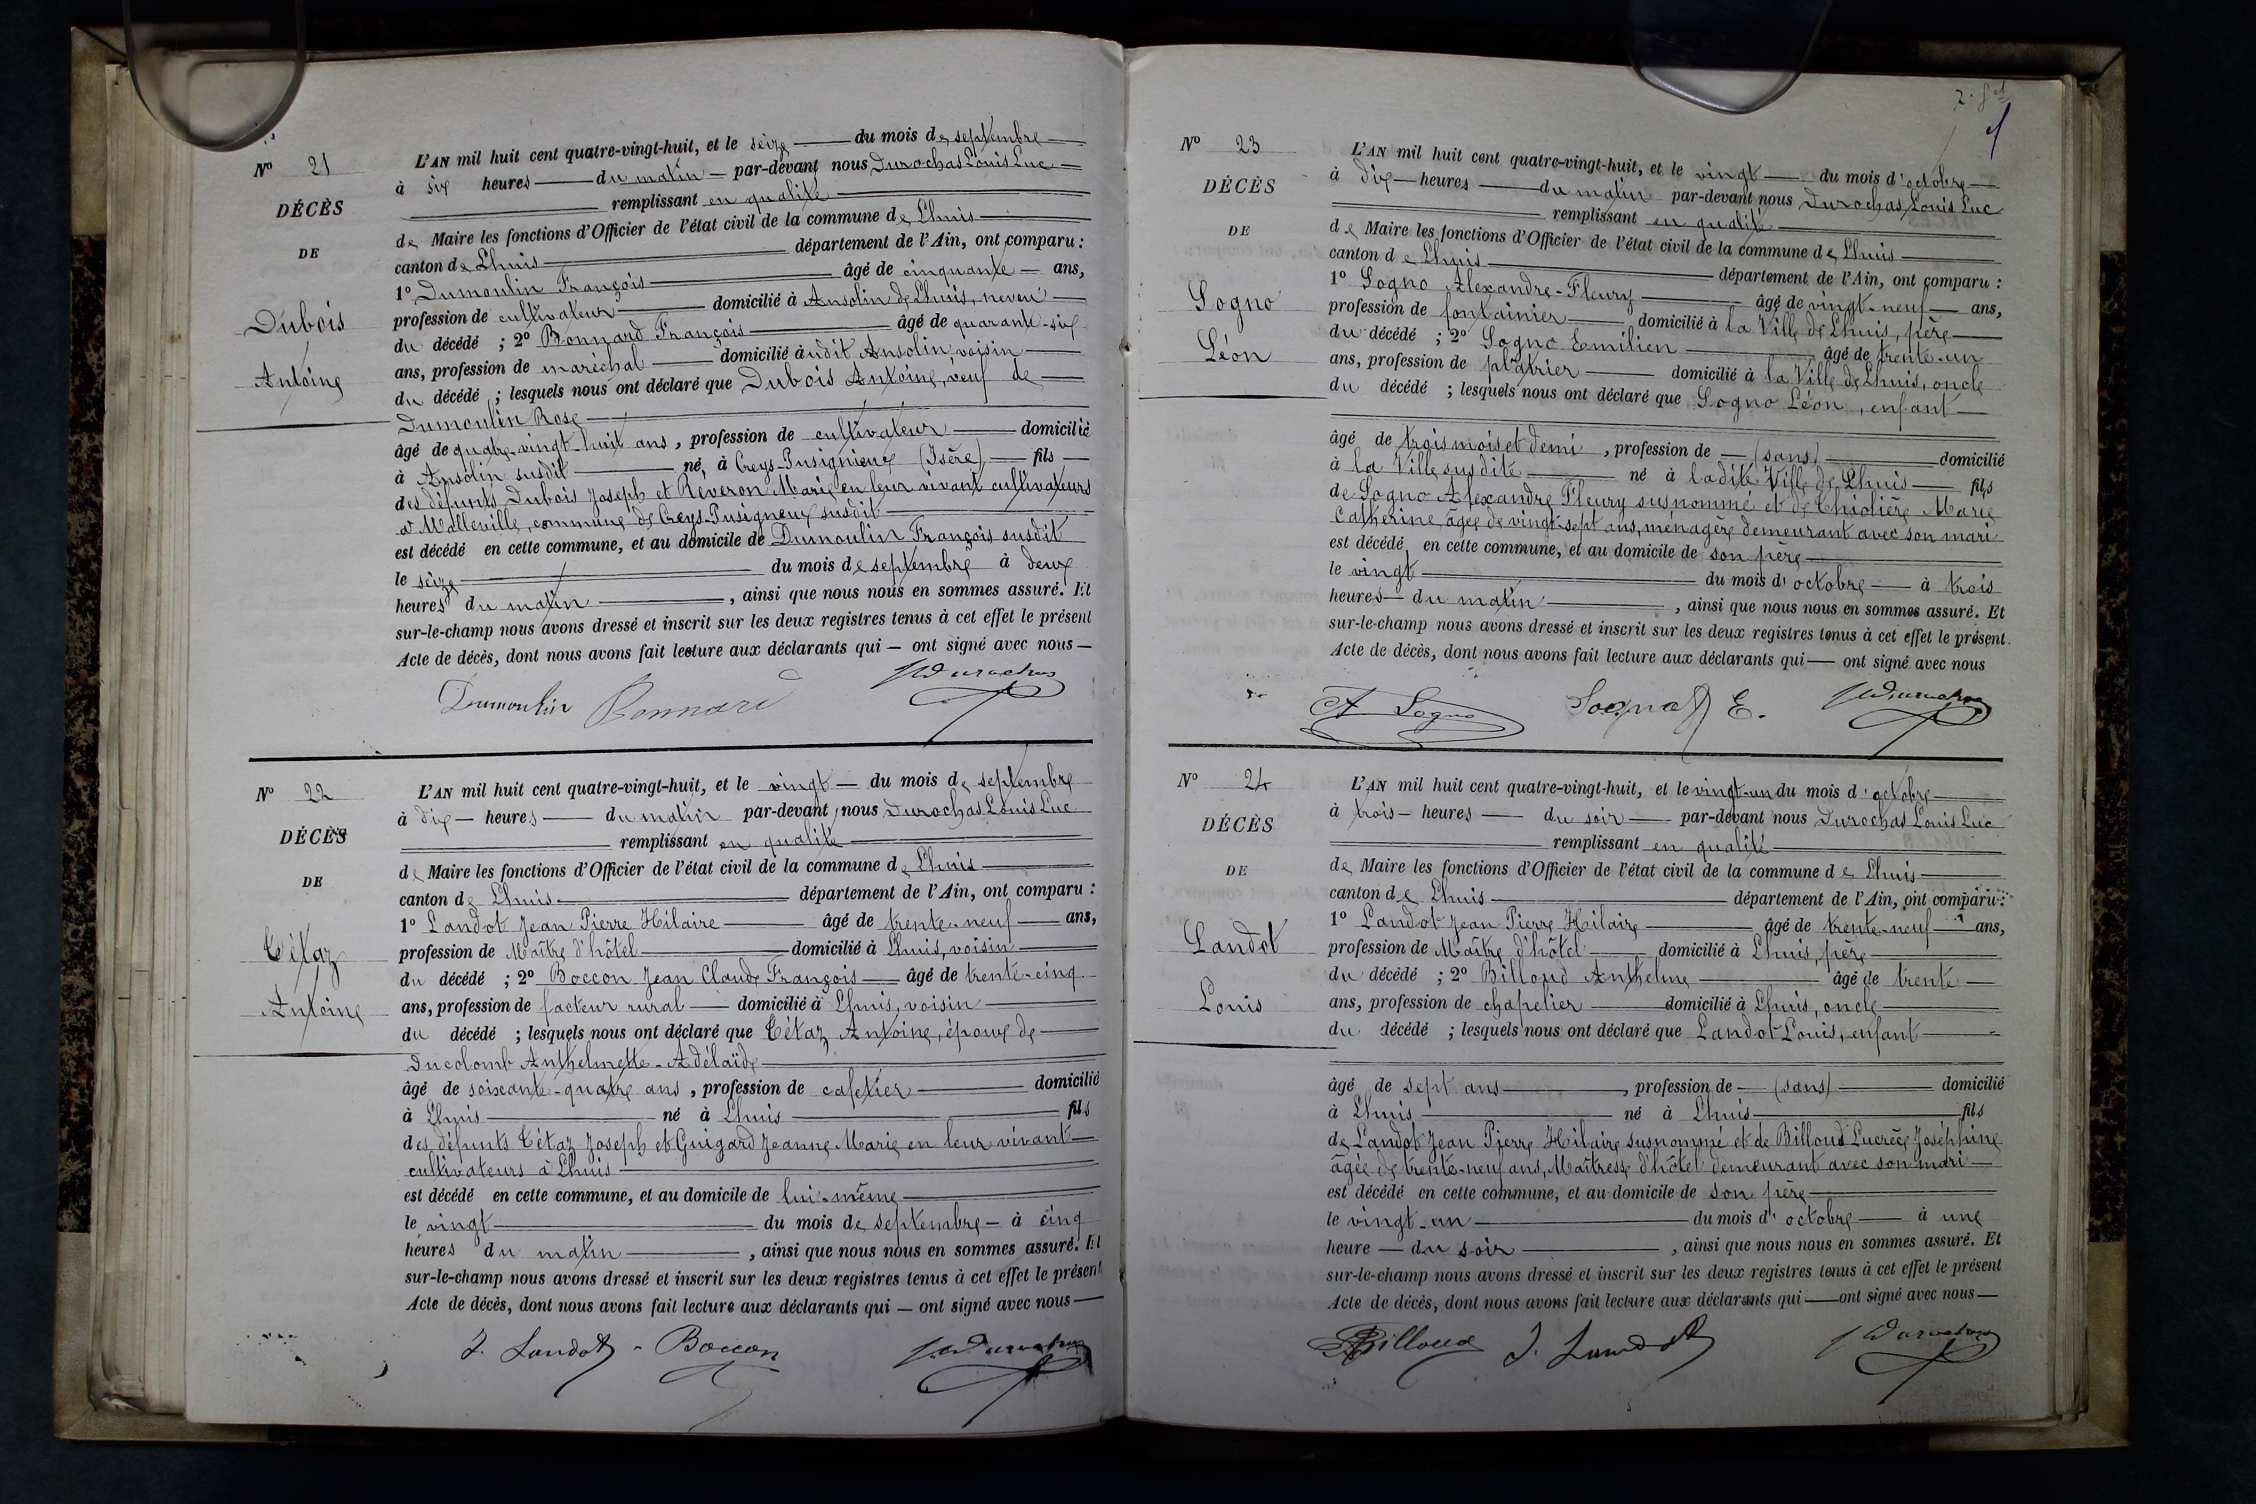 Nº 21
DÉCÈS
DE
Dubois
Antoine
L'AN mil huit cent quatre-vingt-huit, et le seize du mois de septembre
à six heures du matin par-devant nous Durochas Louis Luc
remplissant en qualité
de Maire les fonctions d'Officier de l'état civil de la commune de Lhuis
canton de Lhuis département de l'Ain, ont comparu :
1º Dumoulin François âgé de cinquante ans,
profession de cultivateur domicilié à Ansolin de Lhuis, neveu
du décédé ; 2º Bonnard François âgé de quarante-six
ans, profession de maréchal domicilié audit Ansolin, voisin
du décédé ; lesquels nous ont déclaré que Dubois Antoine, veuf de
Dumoulin Rose
âgé de quatre-vingt-huit ans, profession de cultivateur domicilié
à Ansolin susdit né à Creys-Pusignieux (Isère) fils
des défunts Dubois Joseph et Réveron Marie en leur vivant cultivateurs
à Malleville, commune de Creys-Pusigneux susdit
est décédé en cette commune, et au domicile de Dumoulin François susdit
le seize du mois de septembre à deux
heures du matin, ainsi que nous nous en sommes assuré. Et
sur-le-champ nous avons dressé et inscrit sur les deux registres tenus à cet effet le présent
Acte de décès, dont nous avons fait lecture aux déclarants qui — ont signé avec nous —
Dumoulin Bonnard Durochas
Nº 22
DÉCÈS
DE
Tétaz
Antoine
L'AN mil huit cent quatre-vingt-huit, et le vingt du mois de septembre
à dix heures du matin par-devant nous Durochas Louis Luc
remplissant en qualité
de Maire les fonctions d'Officier de l'état civil de la commune de Lhuis
canton de Lhuis département de l'Ain, ont comparu :
1º Landot Jean Pierre Hilaire âgé de trente-neuf ans,
profession de Maître d'hôtel domicilié à Lhuis, voisin
du décédé ; 2º Boccon Jean Claude François âgé de trente-cinq
ans, profession de facteur rural domicilié à Lhuis, voisin
du décédé ; lesquels nous ont déclaré que Tétaz Antoine, époux de
Ducolomb Anthelmette-Adélaïde
âgé de soixante-quatre ans, profession de cafetier domicilié
à Lhuis né à Lhuis fils
des défunts Tétaz Joseph et Guigard Jeanne Marie en leur vivant
cultivateurs à Lhuis
est décédé en cette commune, et au domicile de lui-même
le vingt du mois de septembre à cinq
heures du matin, ainsi que nous nous en sommes assuré. Et
sur-le-champ nous avons dressé et inscrit sur les deux registres tenus à cet effet le présent
Acte de décès, dont nous avons fait lecture aux déclarants qui — ont signé avec nous —
J. Landot Boccon Durochas
Nº 23
DÉCÈS
DE
Sogno
Léon
L'AN mil huit cent quatre-vingt-huit, et le vingt du mois d'octobre
à dix heures du matin par-devant nous Durochas Louis Luc
remplissant en qualité
de Maire les fonctions d'Officier de l'état civil de la commune de Lhuis
canton de Lhuis département de l'Ain, ont comparu :
1º Sogno Alexandre-Fleury âgé de vingt-neuf ans,
profession de fontainier domicilié à la Ville de Lhuis, père
du décédé ; 2º Sogno Emilien âgé de trente-un
ans, profession de plâtrier domicilié à la Ville de Lhuis, oncle
du décédé ; lesquels nous ont déclaré que Sogno Léon, enfant
âgé de trois mois et demi, profession de (sans) domicilié
à la Ville susdite né à ladite Ville de Lhuis fils
de Sogno Alexandre Fleury susnommé et de Chiolière Marie
Catherine, âgée de vingt-sept ans, ménagère demeurant avec son mari
est décédé en cette commune, et au domicile de son père
le vingt du mois d'octobre à trois
heures du matin, ainsi que nous nous en sommes assuré. Et
sur-le-champ nous avons dressé et inscrit sur les deux registres tenus à cet effet le présent
Acte de décès, dont nous avons fait lecture aux déclarants qui — ont signé avec nous
A Sogno Sogno E. Durochas
Nº 24
DÉCÈS
DE
Landot
Louis
L'AN mil huit cent quatre-vingt-huit, et le vingt-un du mois d'octobre
à trois heures du soir par-devant nous Durochas Louis Luc
remplissant en qualité
de Maire les fonctions d'Officier de l'état civil de la commune de Lhuis
canton de Lhuis département de l'Ain, ont comparu :
1º Landot Jean Pierre Hilaire âgé de trente-neuf ans,
profession de Maître d'hôtel domicilié à Lhuis, père
du décédé ; 2º Billoud Anthelme âgé de trente
ans, profession de chapelier domicilié à Lhuis, oncle
du décédé ; lesquels nous ont déclaré que Landot Louis, enfant
âgé de sept ans, profession de (sans) domicilié
à Lhuis né à Lhuis fils
de Landot Jean Pierre Hilaire susnommé et de Billoud Lucrèce Joséphine
âgée de trente-neuf ans, Maîtresse d'hôtel demeurant avec son mari
est décédé en cette commune, et au domicile de son père
le vingt-un du mois d'octobre à une
heure du soir, ainsi que nous nous en sommes assuré. Et
sur-le-champ nous avons dressé et inscrit sur les deux registres tenus à cet effet le présent
Acte de décès, dont nous avons fait lecture aux déclarants qui — ont signé avec nous —
Billoud J. Landot Durochas